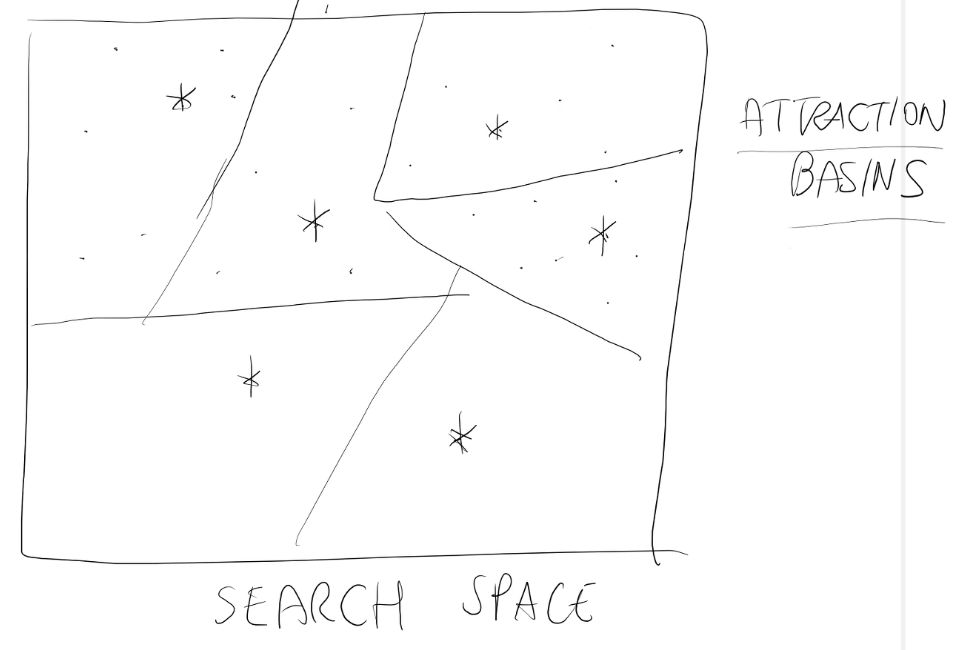 ATTRACTION
BASINS
SEARCH SPACE